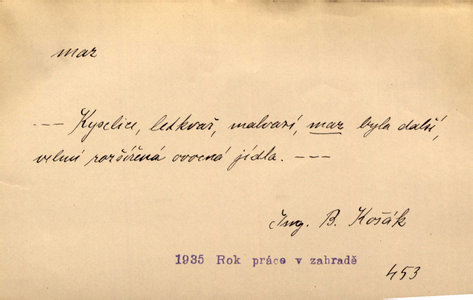 maz
--- Kyselice, letkvař, malvazí, maz byla další,
velmi rozšířená ovocná jídla. ---
Ing. B. Košák
1935 Rok práce v zahradě
453